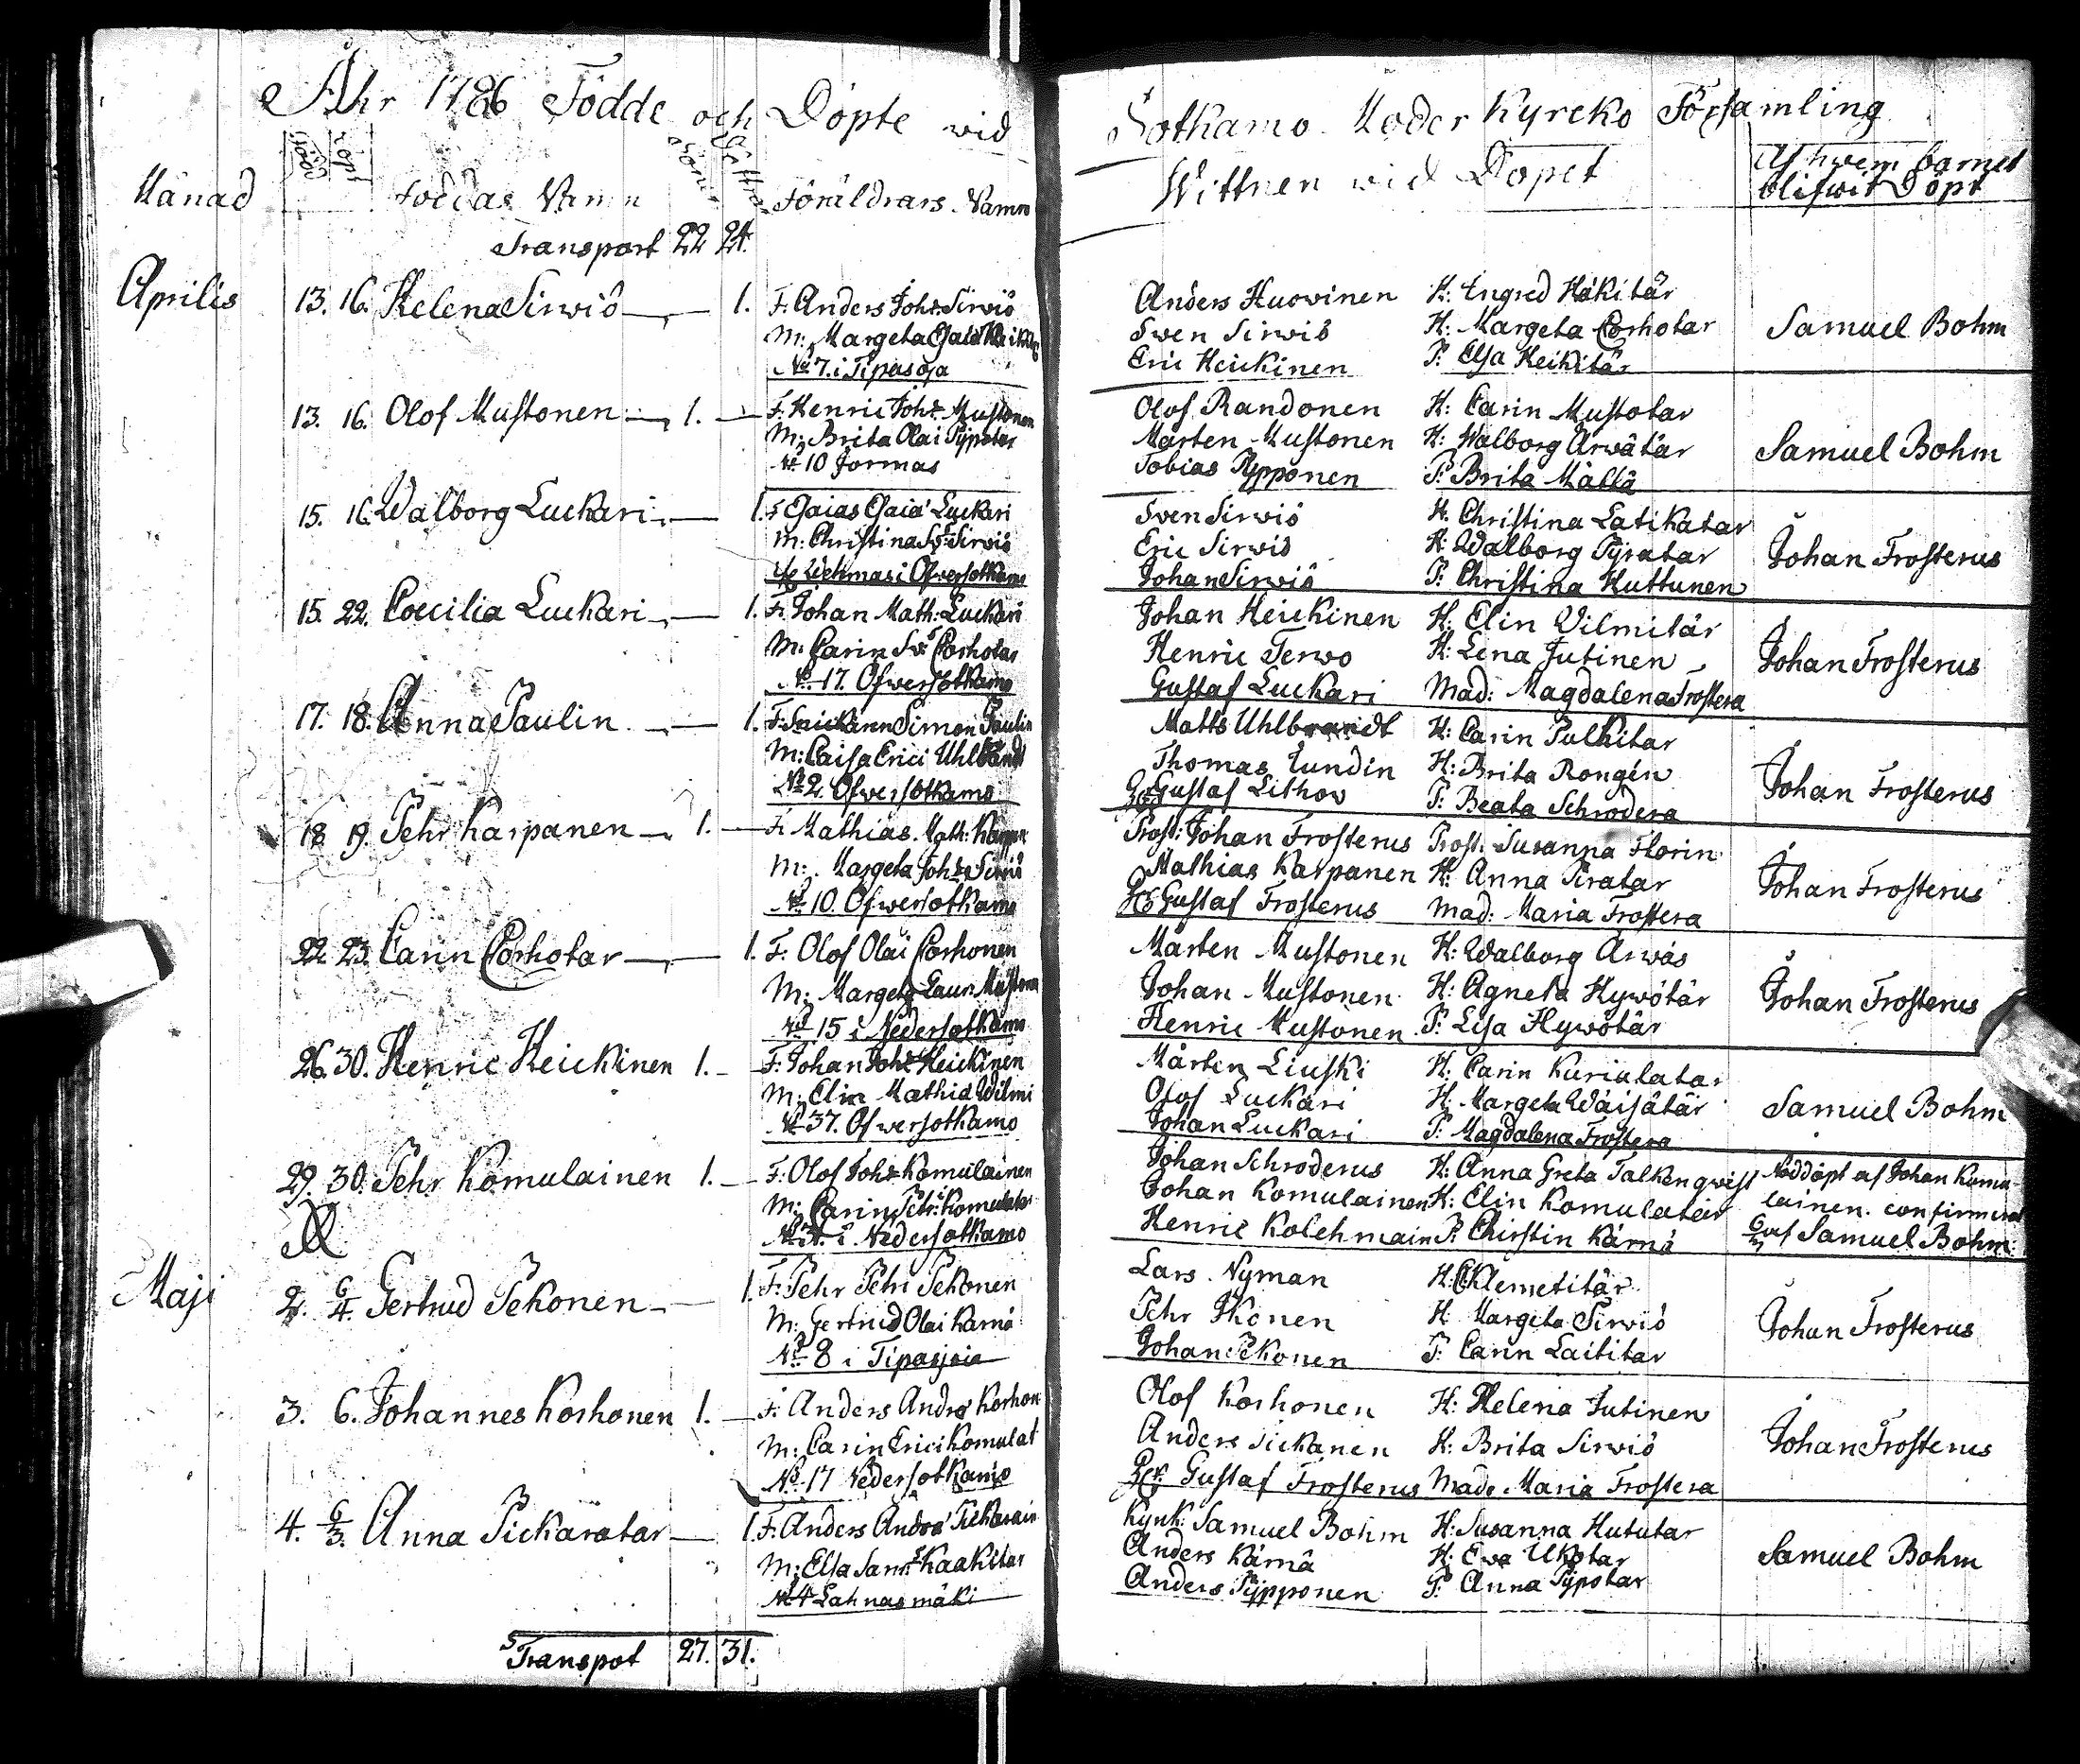 Åhr 1786 Födde och Döpte wid
Sotkamo Moder Kyrcko Församling
Månad
Född
Döpt
Föddas Namn
Söner
Döttrar
Föräldrars Namn
Wittnen wid Dopet
Af hwem barnet
blifwit Döpt
Transport 22 24.
Aprilis 13. 16. Helena Sirwiö 1. F. Anders Joh:s Sirwiö
M: Margeta Esaiæ
No 7. i Tipasoja
Anders Huovinen H: Ingred Häkitär
Swen Sirwiö H: Margeta Corhotar
Eric Heickinen P: Elsa Heikitär
Samuel Bohm
13. 16. Olof Mustonen 1. F. Henric Joh:s Mustonen
M: Brita Olai Pypotar
No 10 Jormas
Olof Randonen H: Carin Mustotar
Mårten Mustonen H: Walborg Arwätär
Tobias Pypponen P: Brita Mällä
Samuel Bohm
15. 16. Walborg Luckari 1. F Esaias Esaiæ Luckari
M: Christina Sv:s Sirwiö
i Öfwersotkamo
Sven Sirwiö H. Christina Latikatar
Eric Sirwiö H: Walborg Pyratar
Johan Sirwiö P: Christina Huttunen
Johan Frosterus
15. 22. Coecilia Luckari 1. F. Johan Math: Luckari
M. Carin Sv:s Corhotar
No 17. Öfwersotkamo
Johan Heickinen H: Elin Vilmitär
Henric Terwo H: Lena Jutinen
Gustaf Luckari Mad: Magdalena Frostera
Johan Frosterus
17. 18. Anna Paulin 1. F. Simon Paulin
M: Caisa Erici Uhlbrandt
No 2. Öfwersotkamo
Matts Uhlbrandt H: Carin Pulkitar
Thomas Lundin H: Brita Rongén
Gustaf Lithov P: Beata Schrodera
Johan Frosterus
18 19. Pehr Karpanen 1. F. Mathias Math: Karppa
M: Margeta Joh:s Sirwiö
No 10. Öfwersotkamo
Prost: Johan Frosterus Prost: Susanna Florin
Mathias Karpanen H: Anna Piratar
Gustaf Frosterus Mad: Maria Frostera
Johan Frosterus
22. 23. Carin Corhotar 1. F: Olof Olai Corhonen
M: Margeta Laur: Mustona
No 15 i Nedersotkamo
Mårten Mustonen H: Walborg Arwäs
Johan Mustonen H: Agneta Hywötär
Henric Mustonen P: Lisa Hywötär
Johan Frosterus
26. 30. Henric Heickinen 1. F. Johan Joh:s Heickinen
M: Elin Mathiæ Wilmi
No 37. Öfwersotkamo
Mårten Liuski H: Carin Kuriulatar
Olof Luckari H: Margeta Wäisätär
Johan Luckari P: Magdalena Frostera
Samuel Bohm
29. 30. Pehr Komulainen 1. F: Olof Joh:s Komulainen
M: Carin Petri Komulatar
i Nedersotkamo
Johan Schroderus H: Anna Greta Falkenqwist
Johan Komulainen H: Elin Komulatar
Henric Kolehmain P: Chirstin Kärnä
Nöddöpt af Johan Komu-
lainen. confirmerat
af Samuel Bohm:
Maji 2. 6/4. Gertrud Pekonen 1. F: Pehr Petri Pekonen
M: Gertrud Olai Kärnä
No 8 i Tipasjoia
Lars Nyman H: Klemetitär
Pehr H Margeta Sirwiö
Johan Pekonen P: Carin Laititar
Johan Frosterus
3. 6. Johannes Korhonen 1. F. Anders Andræ Korhon
M: Carin Erici Komulat
No 17 Nedersotkamo
Olof Korhonen H: Helena Jutinen
Anders Pickanen H: Brita Sirwiö
Gustaf Frosterus Mad. Maria Frostera
Johan Frosterus
4. 6/3. Anna Pickaratar 1. F. Anders Andræ Pickarain
M: Elsa Sam:s Kaakitar
No 4 Lahnasmäki
Kynk: Samuel Bohm H: Susanna Hututar
Anders Kärnä H: Ewa Ukotar
Anders Pypponen P: Anna Pypotar
Samuel Bohm
Transpot 27. 31.